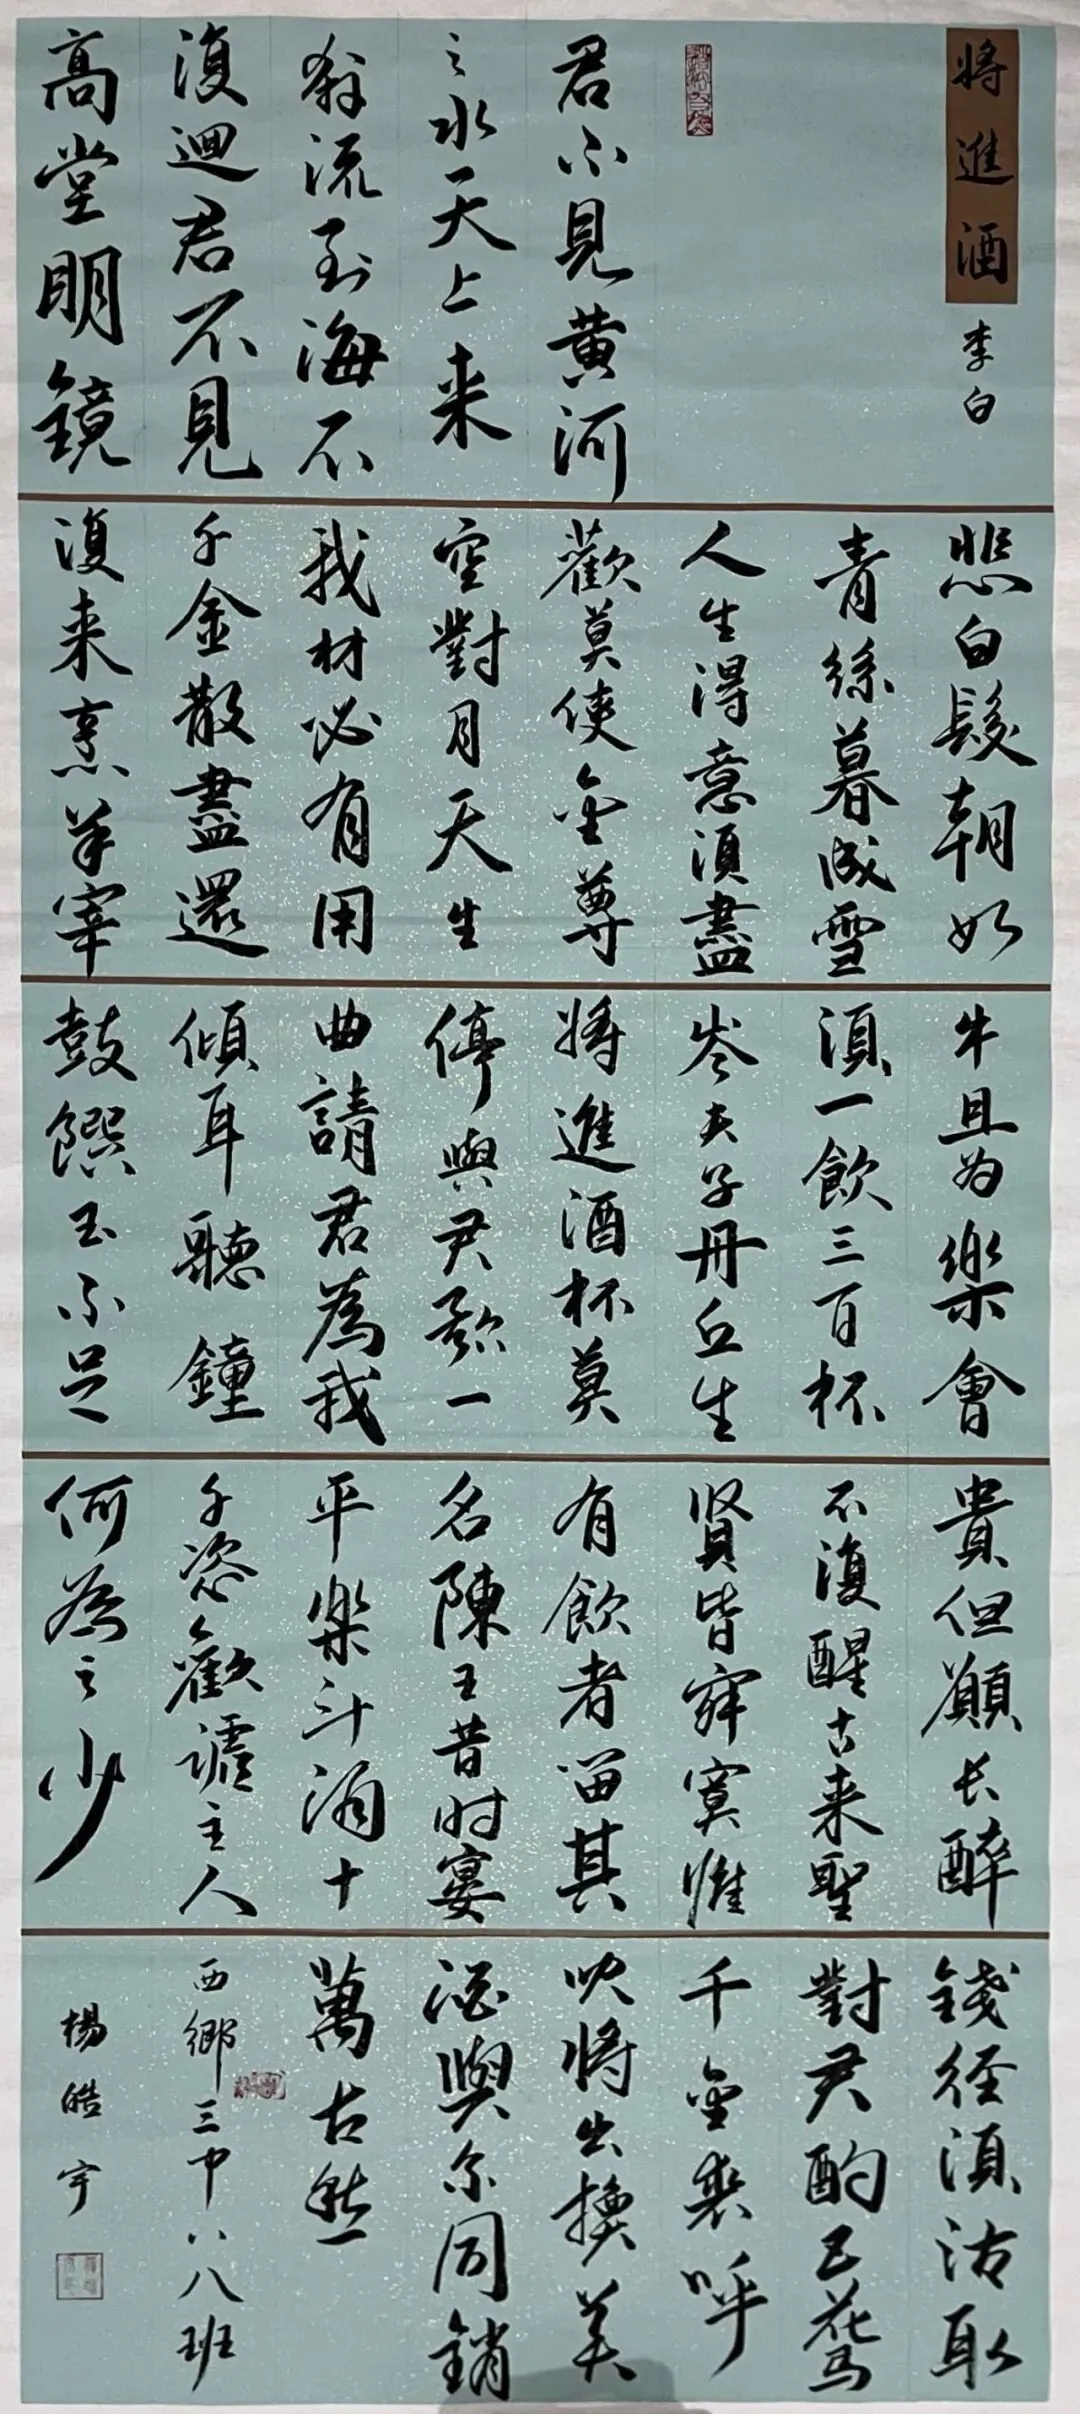 將進酒
李白
君不見黄河
之水天上来
奔流到海不
復迴君不見
高堂明鏡
悲白髮朝如
青絲暮成雪
人生得意須盡
歡莫使金尊
空對月天生
我材必有用
千金散盡還
復来烹羊宰
牛且为樂會
須一飲三百杯
岑夫子丹丘生
將進酒杯莫
停與君歌一
曲請君為我
傾耳聽鐘
鼓饌玉不足
貴但願长醉
不復醒古来聖
賢皆寂寞惟
有飲者留其
名陳王昔时宴
平樂斗酒十
千恣歡謔主人
何為言少
錢径須沽取
對君酌五花马
千金裘呼
兒將出換美
酒與尔同銷
萬古愁
西鄉三中八八班
楊皓宇